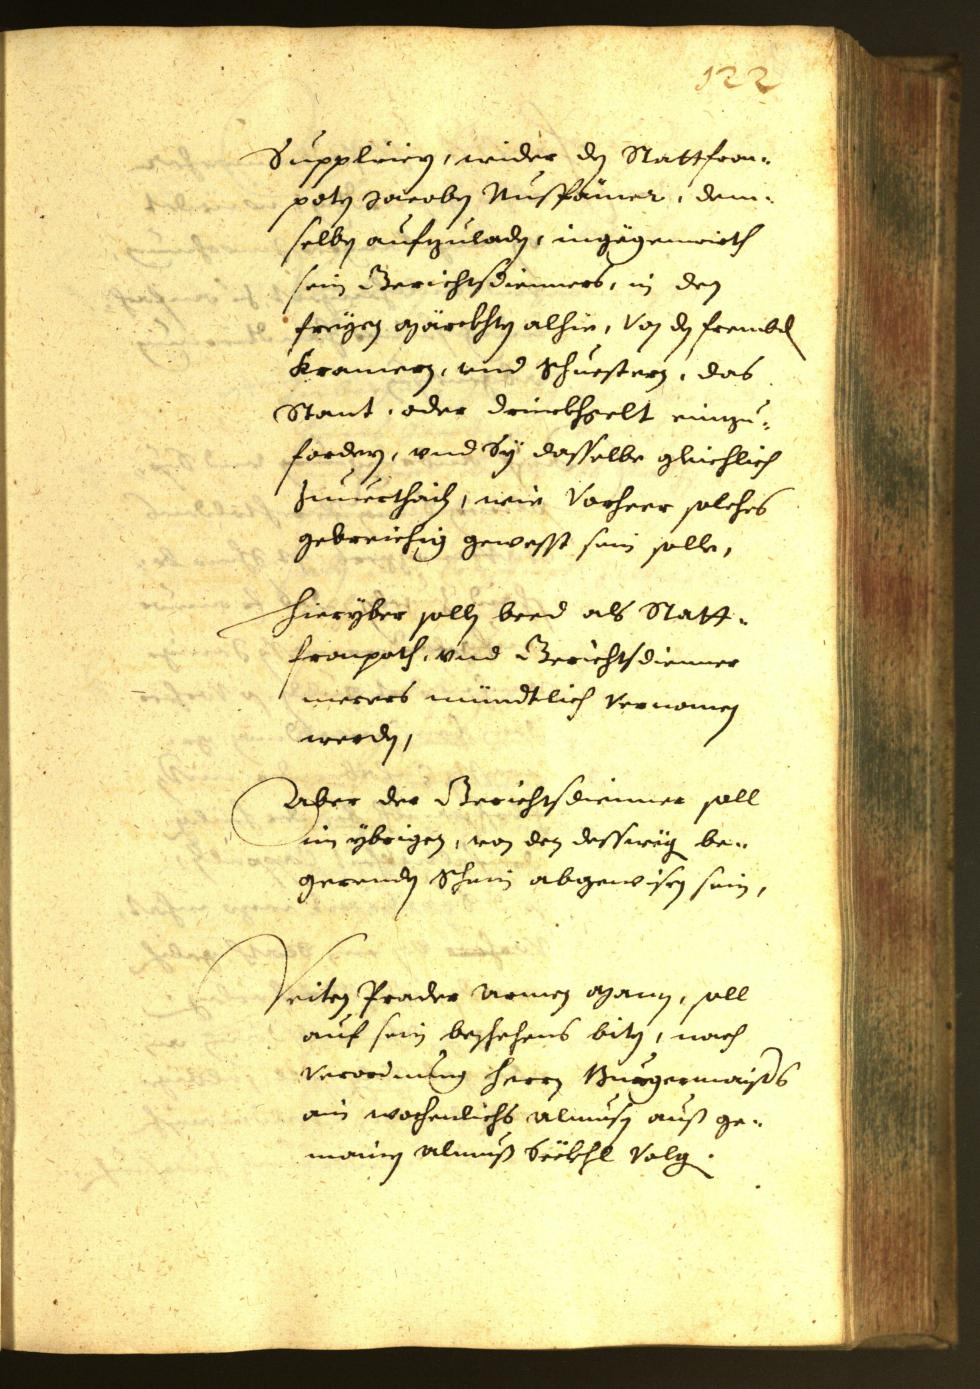 122
Suppliciern, wider den Stattfron-
poten Jacoben Nuspämer, dem-
selben aufzuladen, ingegenwirth
sein Gerichtsdienners, in den
freyen märckhten alhie, von den frembden
Kramern, vnd Schuestern, das
Stant, oder drinckhgelt einzu-
fordern, vnd Sy dasselbe gleichlich
zuuerthailn, wie vorheer solches
gebreichig gewesst sein solle,
Hieryber solln beed als Statt-
fronpoth, vnd Gerichtsdienner
merers mündtlich vernomen
werden,
Aber der Gerichtsdienner soll
im ybrigen, von den desswegen be-
gerenden Schein abgewisen sein,
Veiten Prader armen mann, soll
auf sein beschehens biten, nach
verordnung herrn Burgermaisters
ain wochenlichs almusen auß ge-
mainen almuß Seckhl volgen.